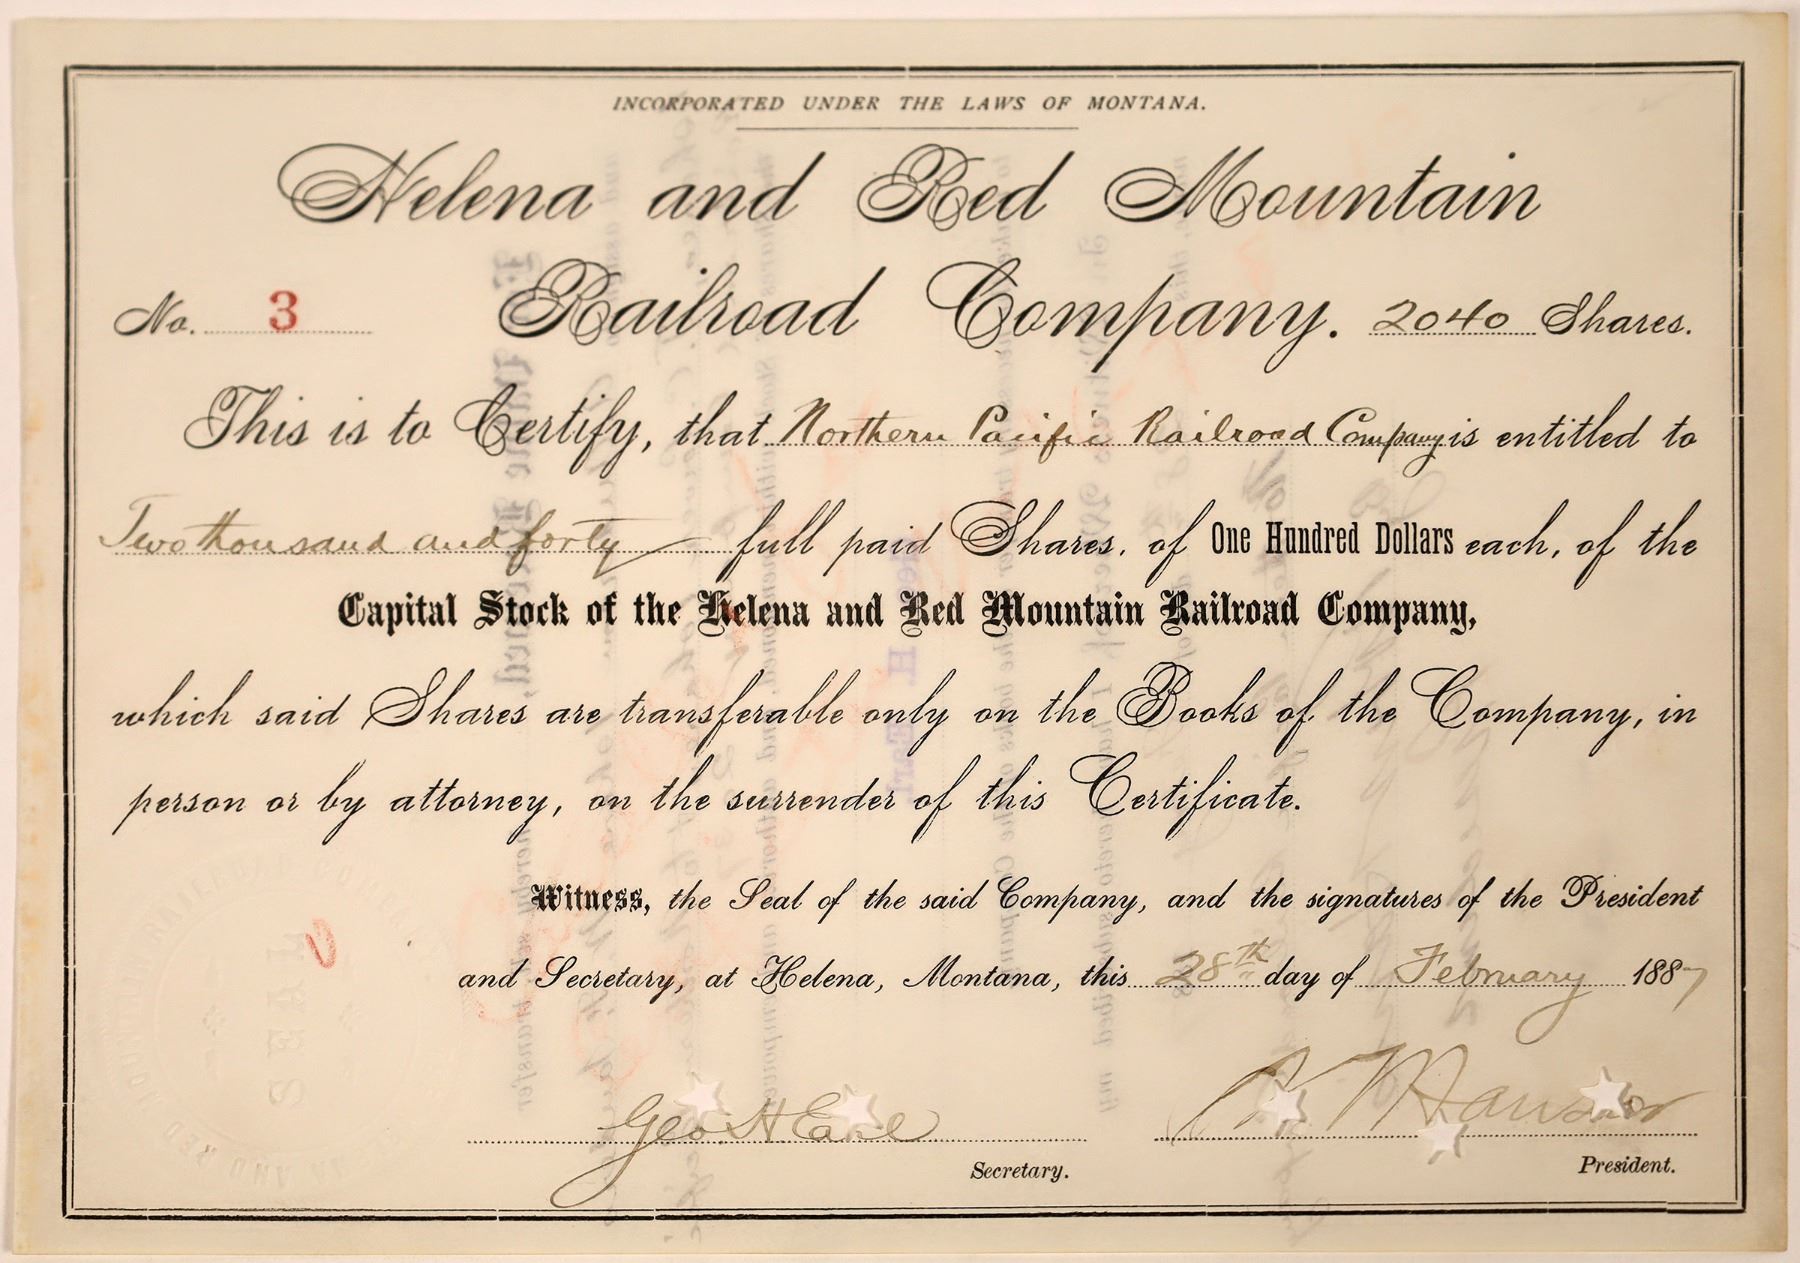 INCORPORATED UNDER THE LAWS OF MONTANA.
Helena and Red Mountain
No. 3 Railroad Company. 2040 Shares.
This is to Certify, that Northern Pacific Railroad Company is entitled to
Two thousand and forty full paid Shares, of One Hundred Dollars each, of the
Capital Stock of the Helena and Red Mountain Railroad Company,
which said Shares are transferable only on the Books of the Company, in
person or by attorney, on the surrender of this Certificate.
Witness, the Seal of the said Company, and the signatures of the President
and Secretary, at Helena, Montana, this 28th day of February 1887
Geo. H Earl
Secretary.
President.